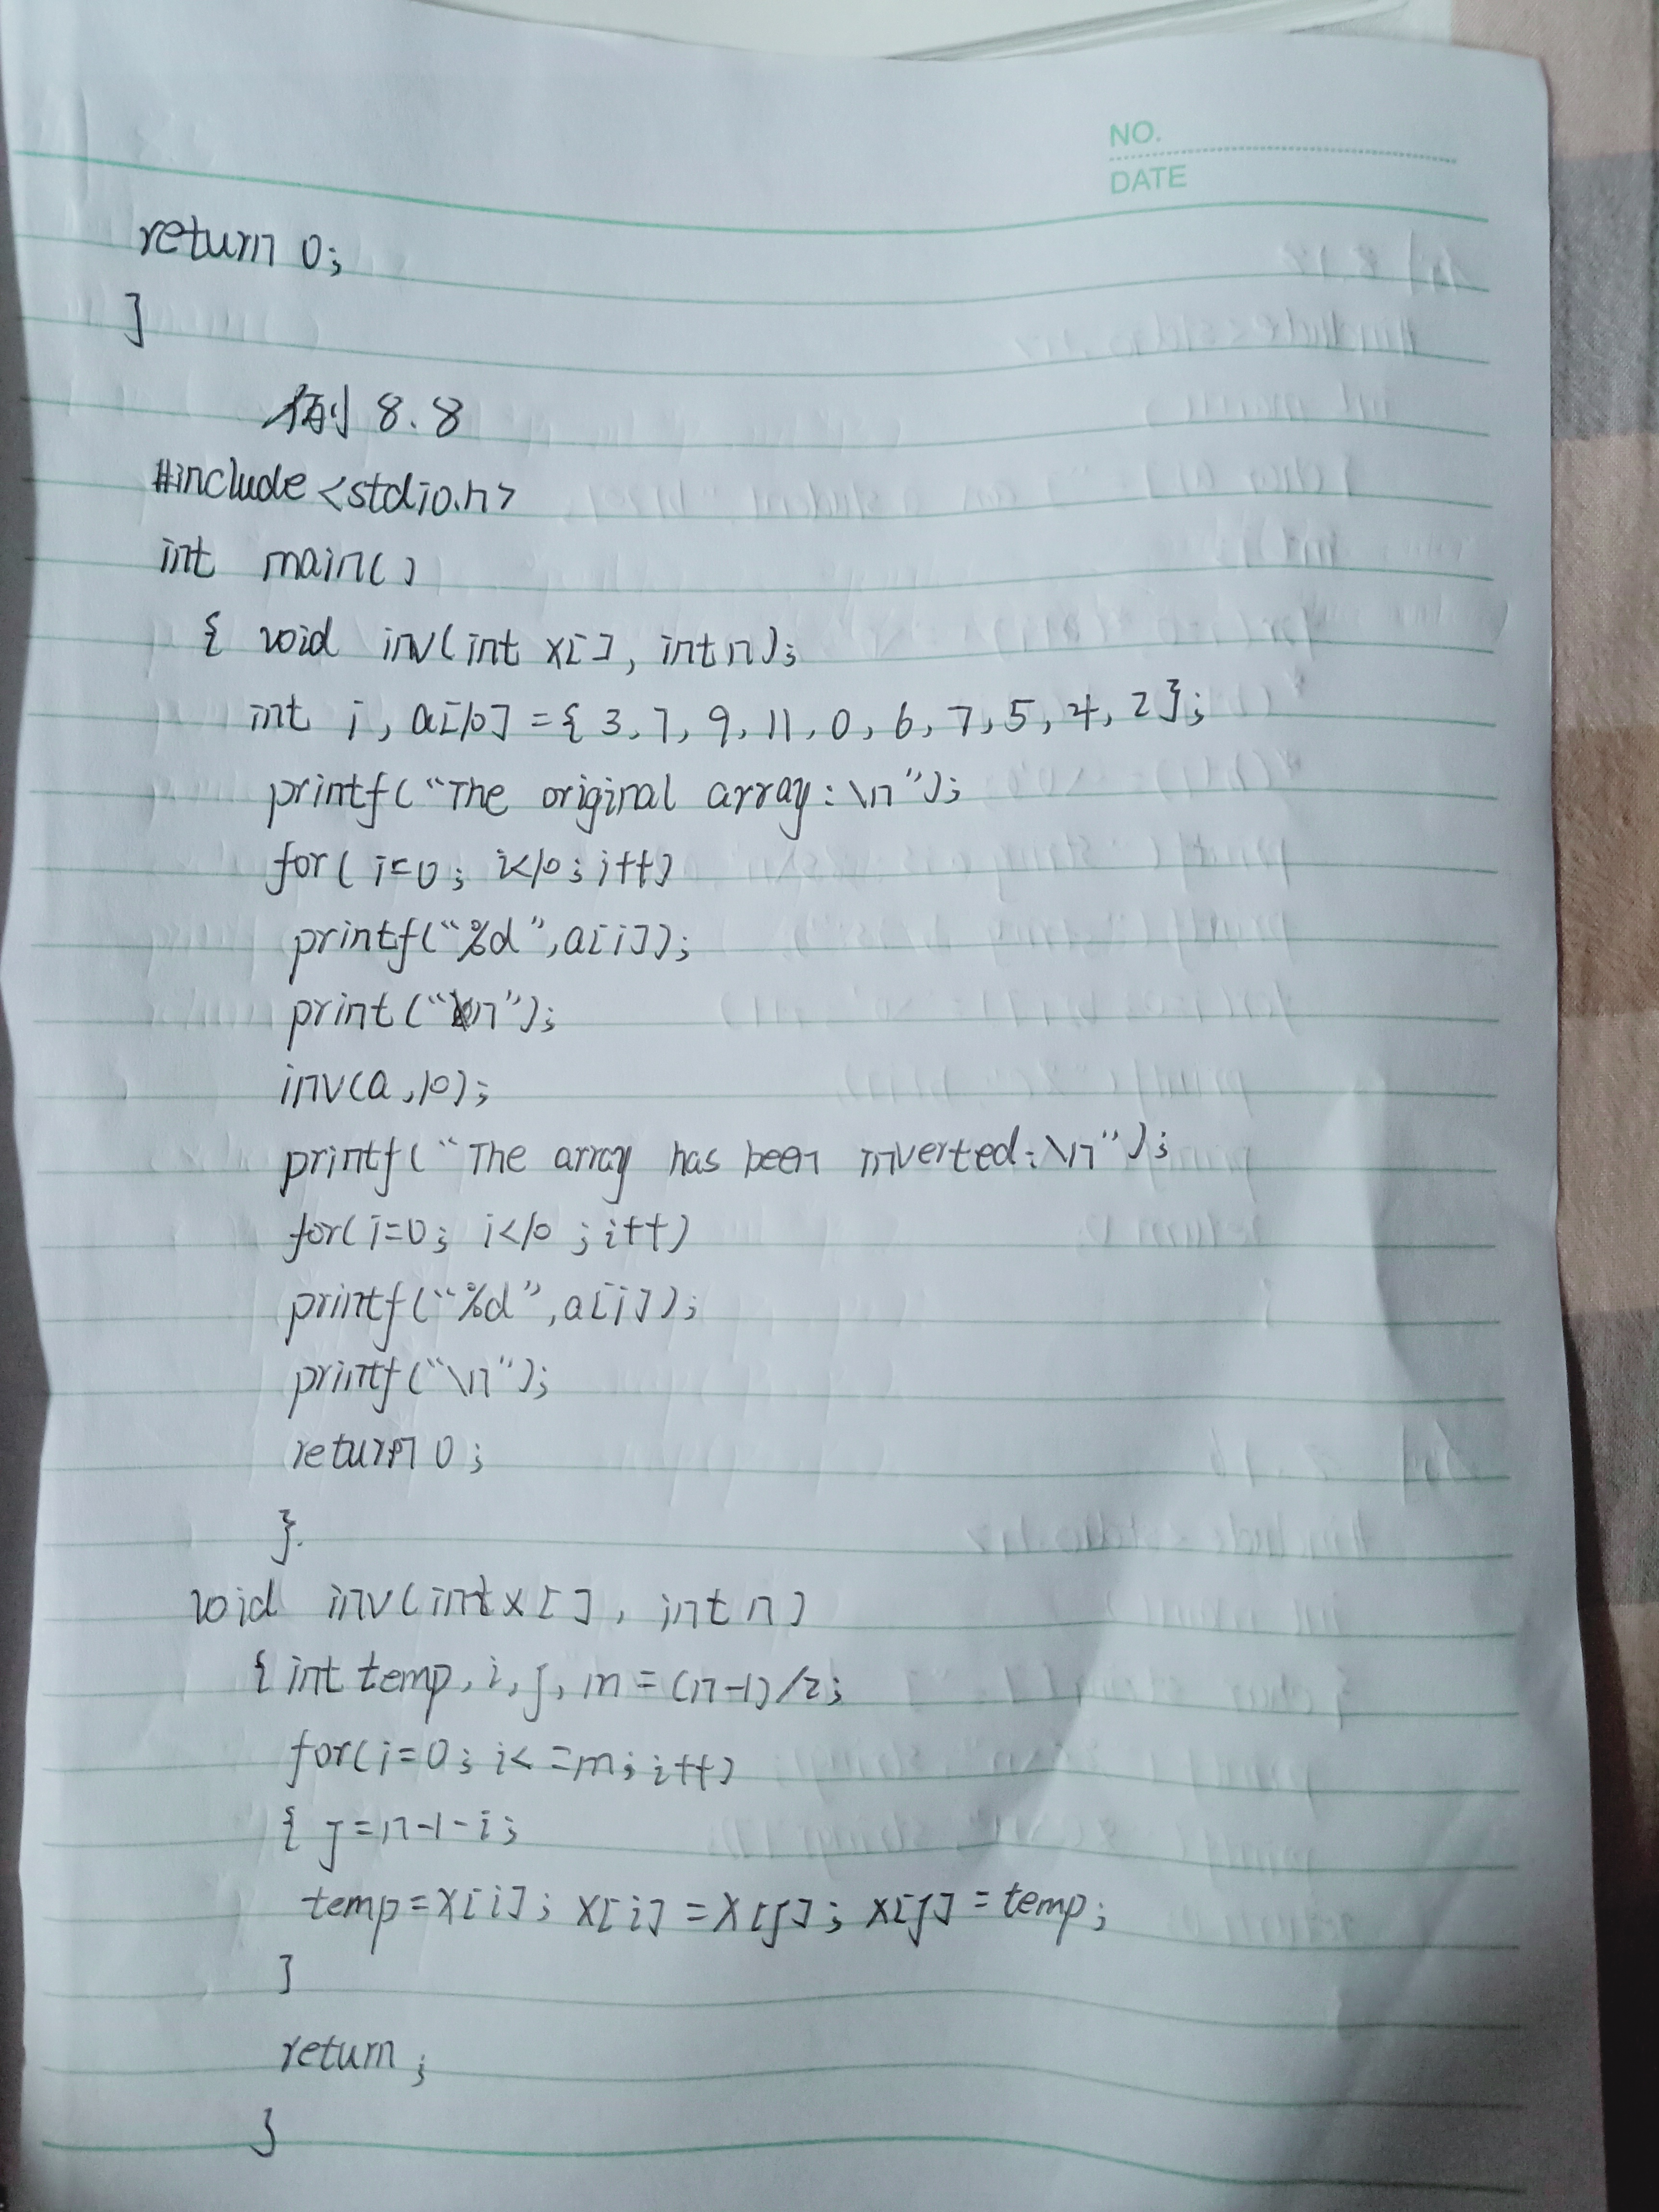 NO.
DATE
return 0;
}
例 8.8
#include<stdio.h>
int main()
{ void inv(int x[], int n);
int i, a[10] = { 3, 7, 9, 11, 0, 6, 7, 5, 4, 2 };
printf("The original array:\n");
for( i=0; i<10; i++)
printf("%d",a[i]);
print("\n");
inv(a,10);
printf("The array has been inverted:\n");
for(i=0; i<10 ; i++)
printf("%d",a[i]);
printf("\n");
return 0;
}.
void inv(int x[], int n)
{ int temp, i, j, m = (n-1)/2;
for(i=0; i<=m; i++)
{ j=n-1-i;
temp=x[i]; x[i] = x[j]; x[j] = temp;
}
return;
}